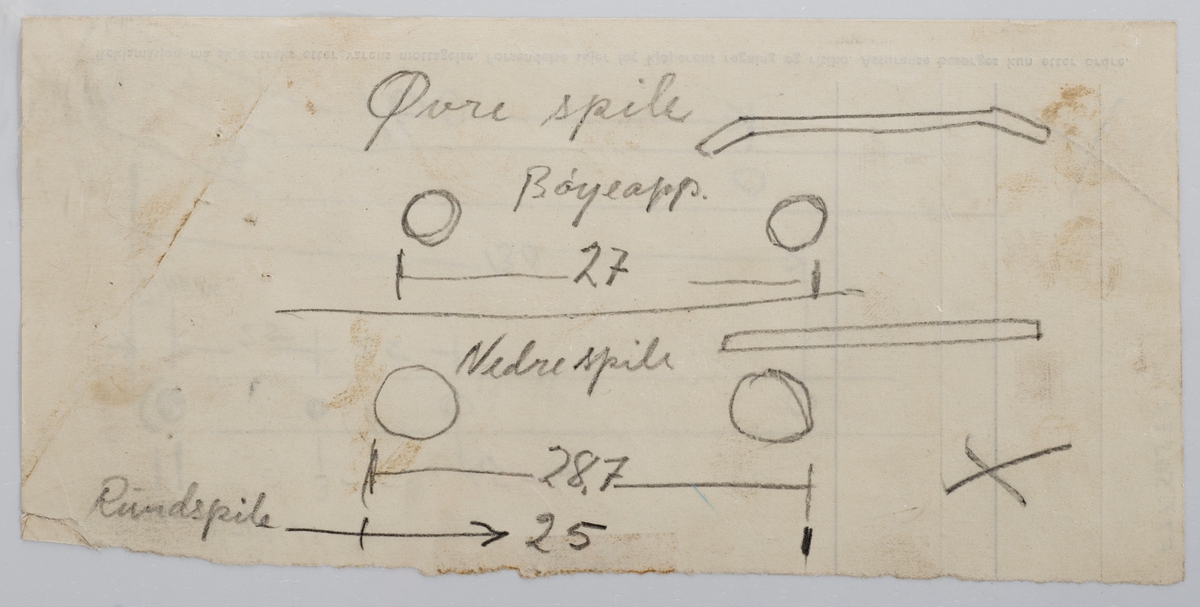 Øvre spile
Bøyeapp.
27
Nedre spile
28,7
Rundspile
25
X